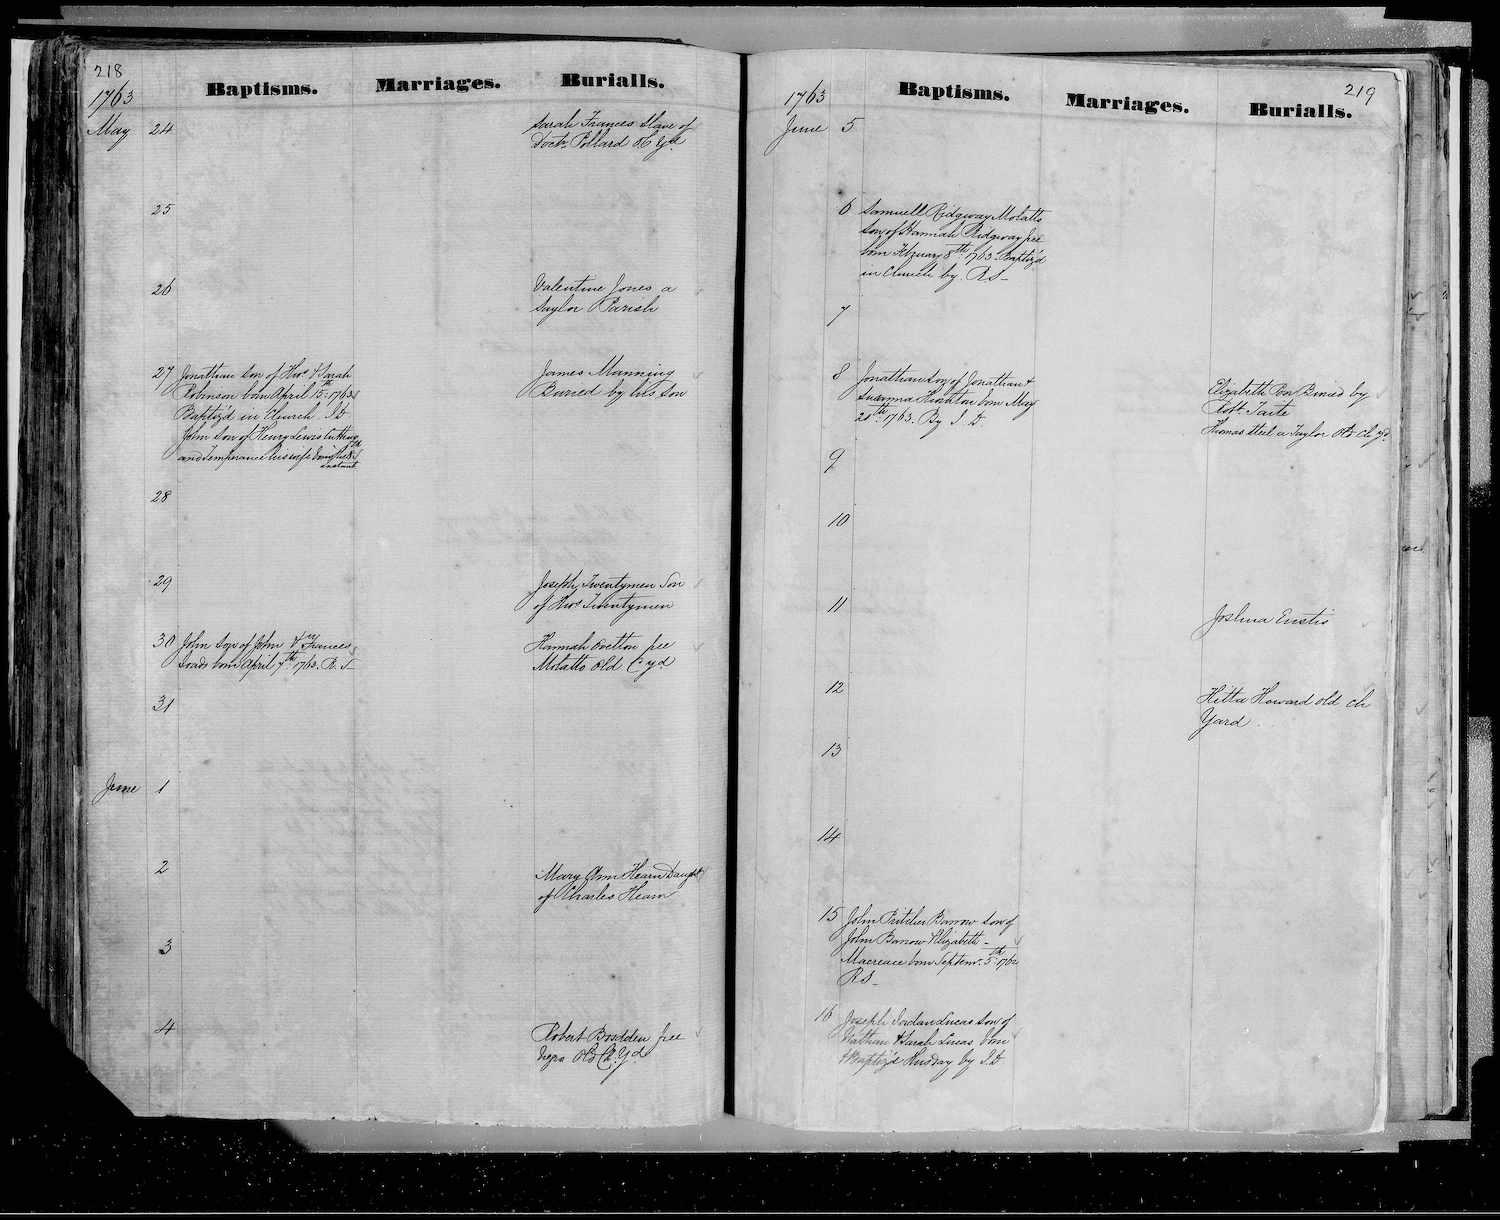 218
1763
Baptisms. Marriages. Burialls.
May 24 Sarah Frances Slave of
Doctr. Pollard Yd.
25
26 Valentine Jones a
Taylor Parish
27 Jonathan Son of Thos. & Sarah
Robinson born April 15th 1763
Baptiz'd in Church
John Son of Henry Lewis
and Temperance his wife born
instant
James Manning
Buried by his Son
28
29 Joseph Twentymen Son
of Thos. Twentymen
30 John Son of John & Frances
born April 7th 1763. R S
Hannah free
Molatto Old C yd
31
June 1
2 Mary Ann Hearn Daught
of Charles Hearn
3
4 Robert Bowdden free
Negro Old Ch Yd
219
1763
Baptisms. Marriages. Burialls.
June 5
6 Samuell Ridgway Molatto
Son of Hannah Ridgway free
born February 8th 1763 Baptiz'd
in Church by. R S
7
8 Jonathan Son of Jonathan &
Susanna born May
1763. By
Elizabeth Buried by
Robt.
Thomas Steel a Taylor Old Ch yd
9
10
11 Joshua Eustis
12 Hitta Howard old ch
Yard
13
14
15 John Barrow Son of
John Barrow & Elizabeth
born Septemr. 5th 1762
R S
16 Joseph Jordan Lucas Son of
Nathan & Sarah Lucas born
& Baptiz'd by